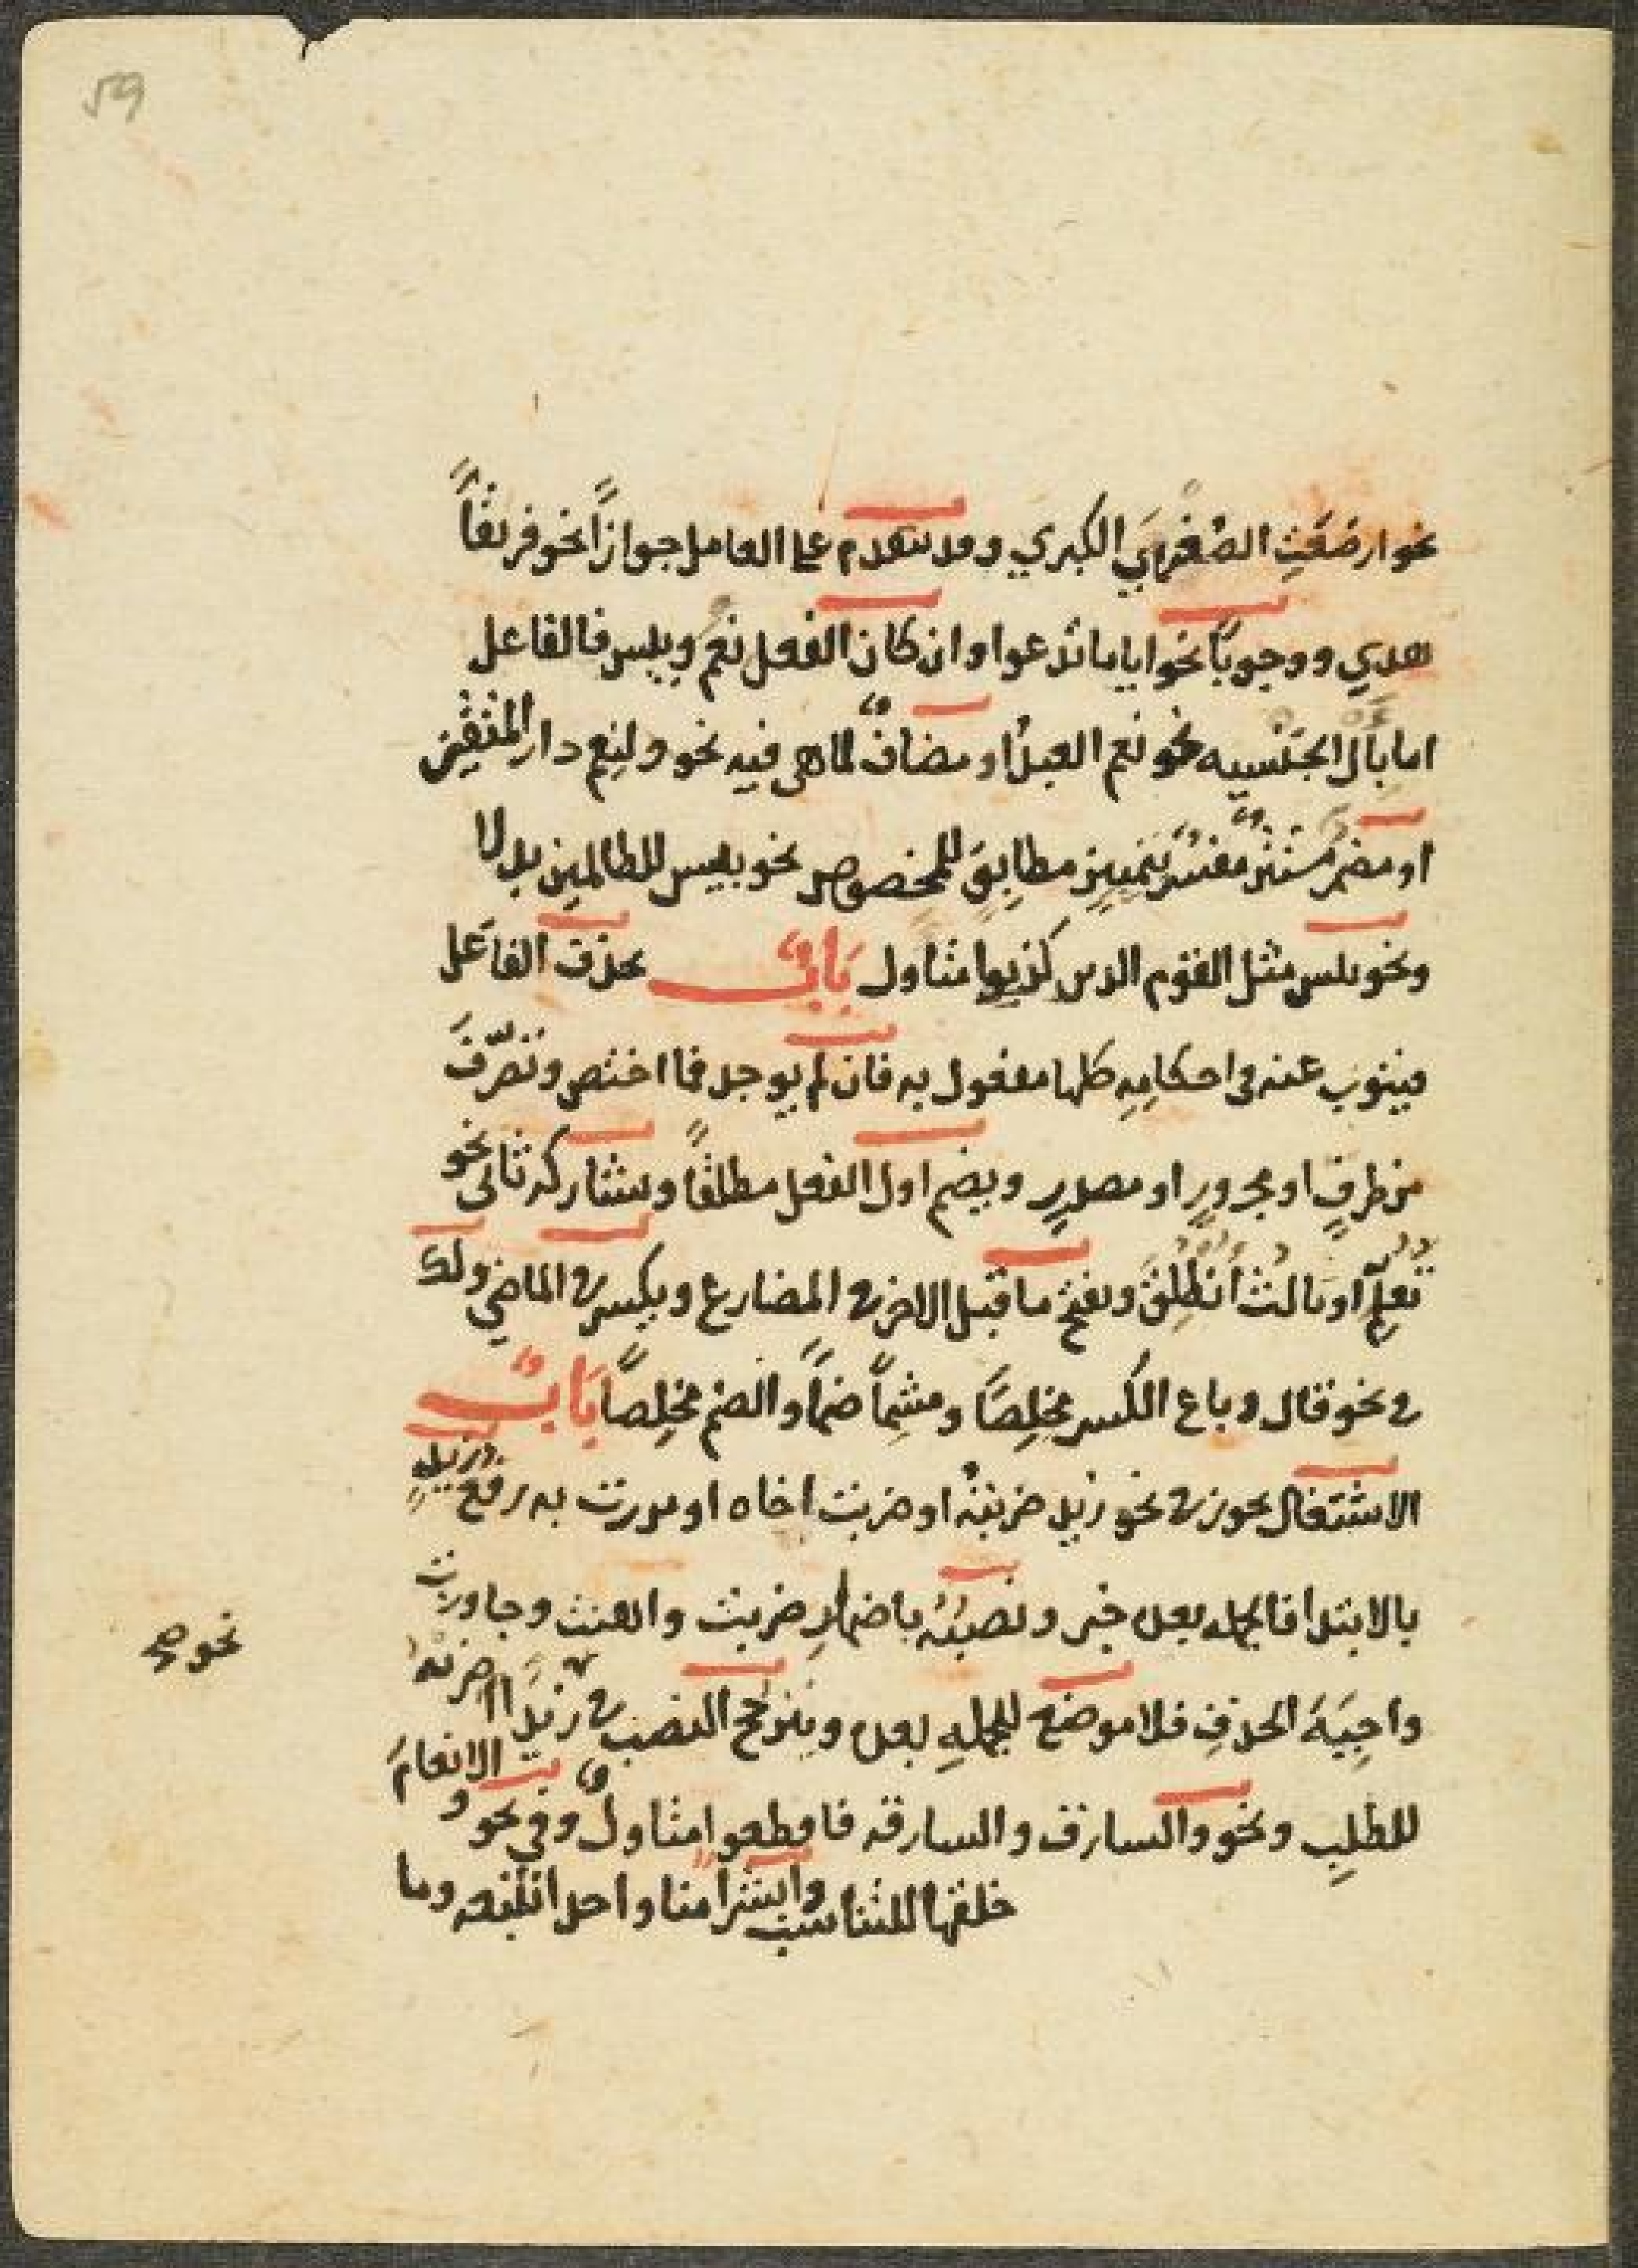 59
نحو ارضعت الصغرى الكبرى وقد يتقدم على العامل جوازاً نحو فريقاً
هدي ووجوباً نحو اياما تدعوا وان كان الفعل نعم وبيس فالفاعل
اما بال الجنسيه نحو نعم العبد او مضاف لما هى فيه نحو ولنعم دار المتقين
او مضمر مستتر مفسر بتمييز مطابق للمخصوص نحو بيس للظالمين بدلا
ونحو بيس مثل القوم الذين كذبوا متاول بَابٌ يحذف الفاعل
فينوب عنه فى احكامه كلها مفعول به فان لم يوجد فما اختص وتصرّف
من ظرفٍ او مجرورٍ او مصدرٍ ويضم اول الفعل مطلقاً ويشاركه ثانى نحو
تُعلم او ثالث اُنطُلِق ويفتح ما قبل الاخر فى المضارع ويكسر فى الماضي ولك
فى نحو قال وباع الكسر مخلِصًا ومشِماً ضماً والضم مخلِصاً بَابٌ
الاشتغال يجوز فى نحو زيد ضربته او ضربت اخاه او مررت به رفع زيدٍ
بالابتدا فالجمله بعده خبر ونصبُهُ باضمارِ ضربت واهنت وجاوزت
واجبَةَ الحذفِ فلا موضع للجملهِ بعده ويترجح النصب فى زيدا اضربه
للطلبِ ونحو والسارق والسارقه فاقطعوا متاولٌ وفي نحو والانعامَ
خلقها للتناسب وابشرا منا واحدا نتبعه وما
نحو صح